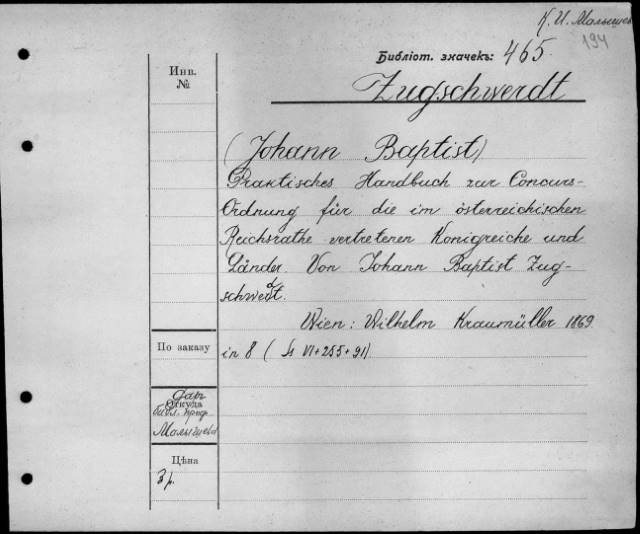 К. И. Малышев
194
Библіот. значекъ: 465.
Инв.
№
Zugschwerdt
(Johann Baptist)
Praktisches Handbuch zur Concurs-
Ordnung für die im österreichischen
Reichsrathe vertretenen Königreiche und
Länder. Von Johann Baptist Zug-
schwerdt.
Wien: Wilhelm Kraumüller 1869
По заказу
in 8 (Ss VI+255+91)
Даръ
Откуда
библ. проф.
Малышева
Цѣна
3 р.